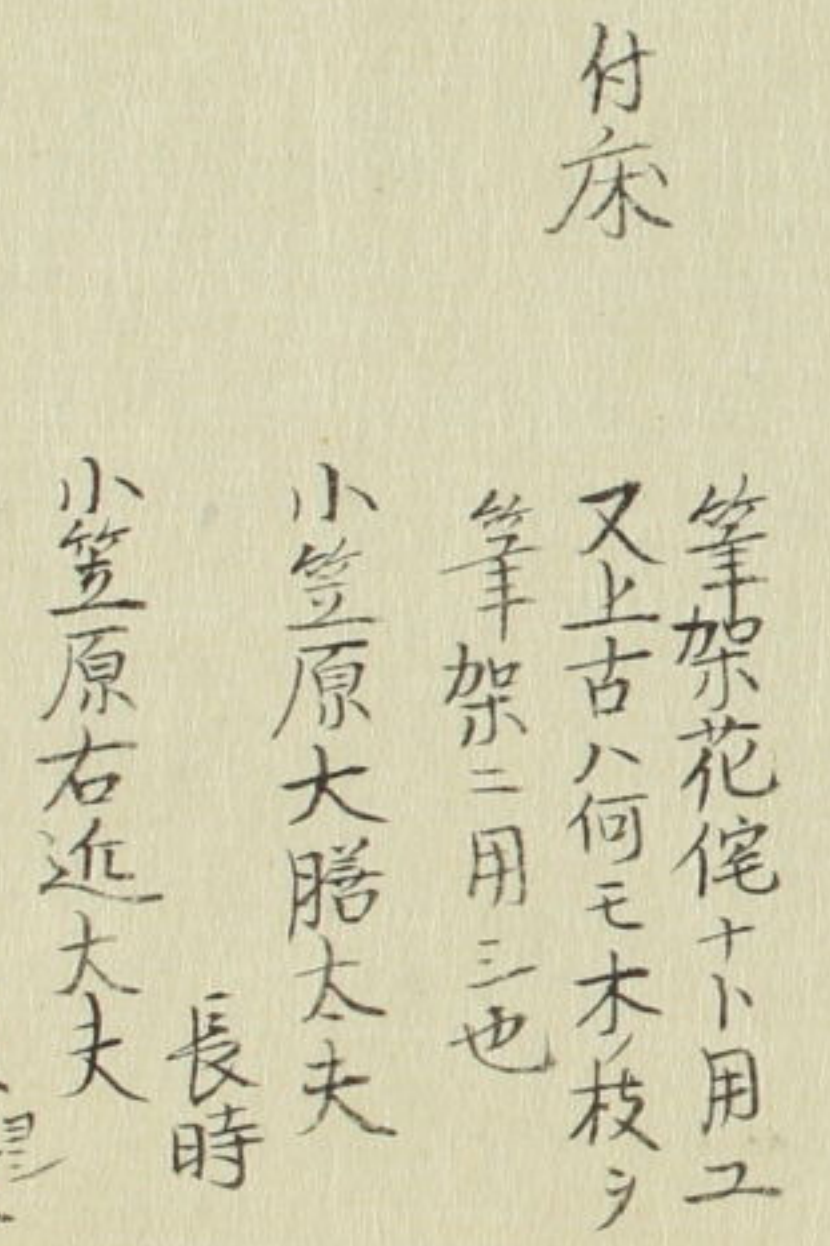 付床
筆架花侘ナト用ユ
又上古ハ何モ木ノ枝ヲ
筆架ニ用ミ也
小笠原大膳太夫
長時
小笠原右近大夫